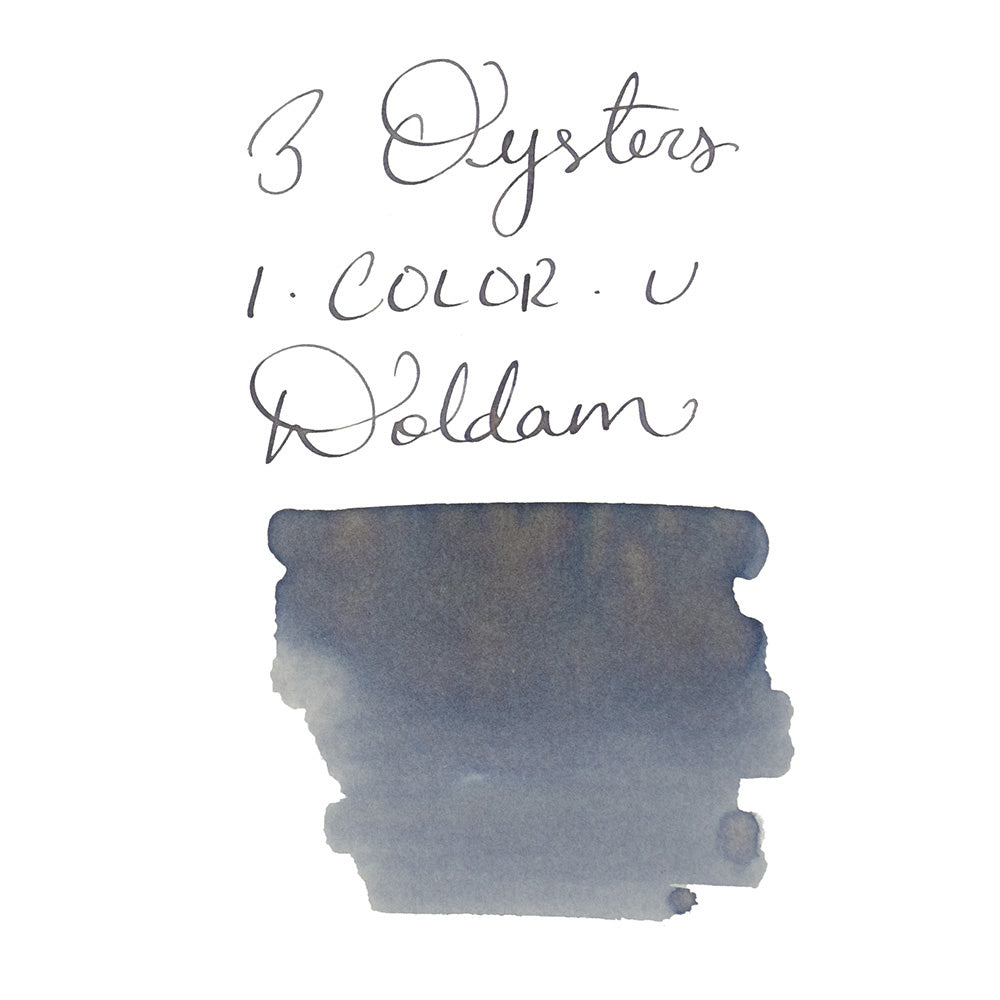 3 Oysters
I · COLOR · U
Doldam